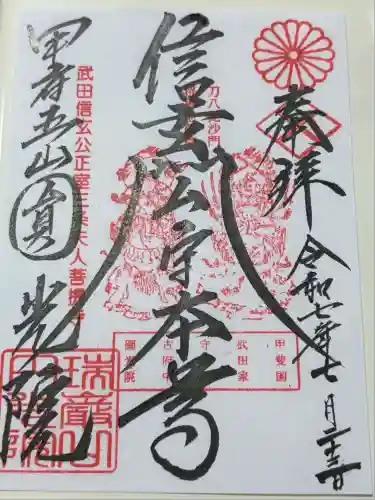 奉拝
令和七年七月二十三日
刀八毘沙門
信玄公守本尊
武田信玄公正室三条夫人菩提寺
甲府五山
圓光院
甲斐国
武田家
守
古府中
圓光院
瑞巖山